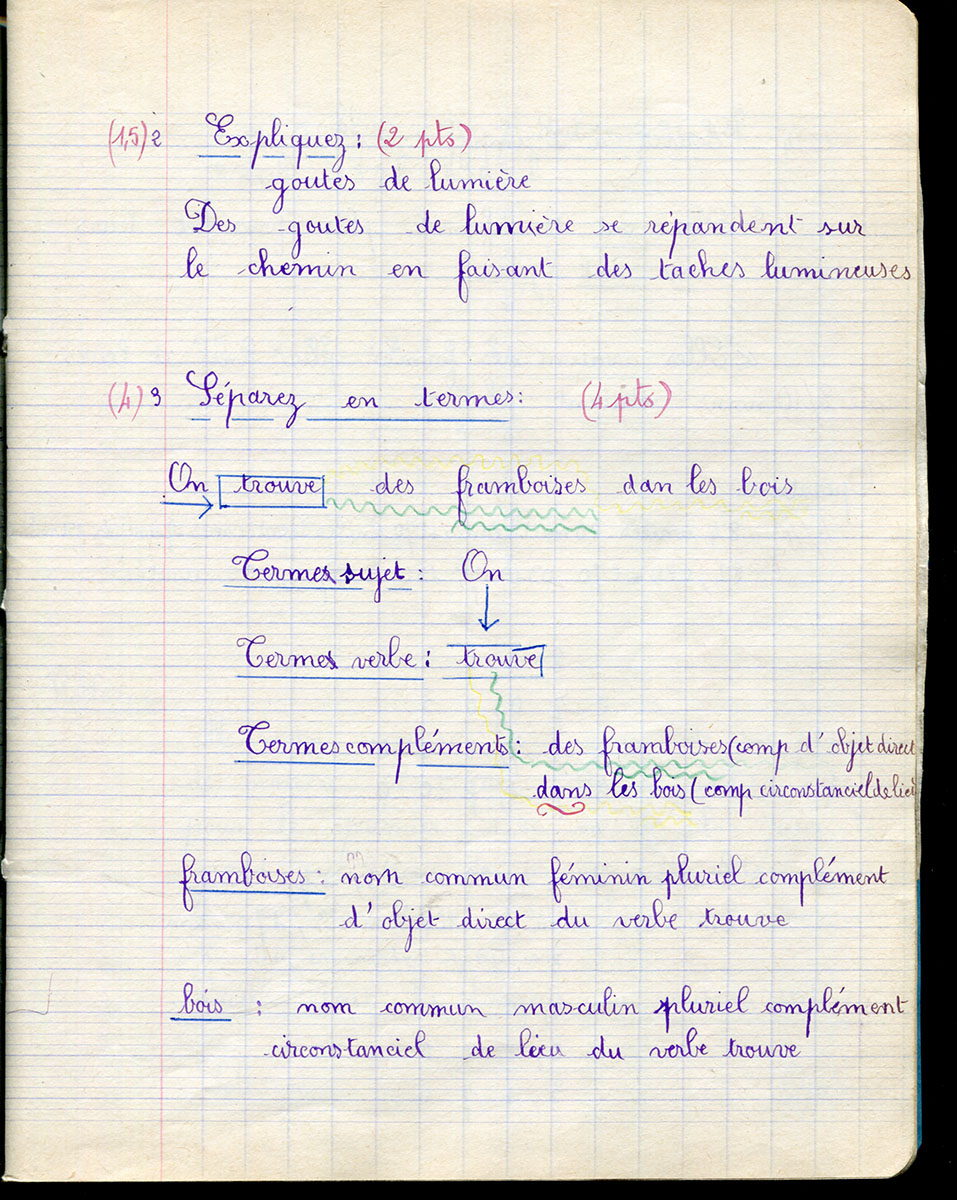 (1,5) 2 Expliquez : (2 pts)
goutes de lumière
Des goutes de lumière se répandent sur
le chemin en faisant des taches lumineuses
(4) 3 Séparez en termes : (4 pts)
On trouve des framboises dan les bois
Termes sujet : On
Termes verbe : trouve
Termes compléments : des framboises (comp d'objet direct
dans les bois (comp circonstanciel de lieu
framboises : nom commun féminin pluriel complément
d'objet direct du verbe trouve
bois : nom commun masculin pluriel complément
circonstanciel de lieu du verbe trouve